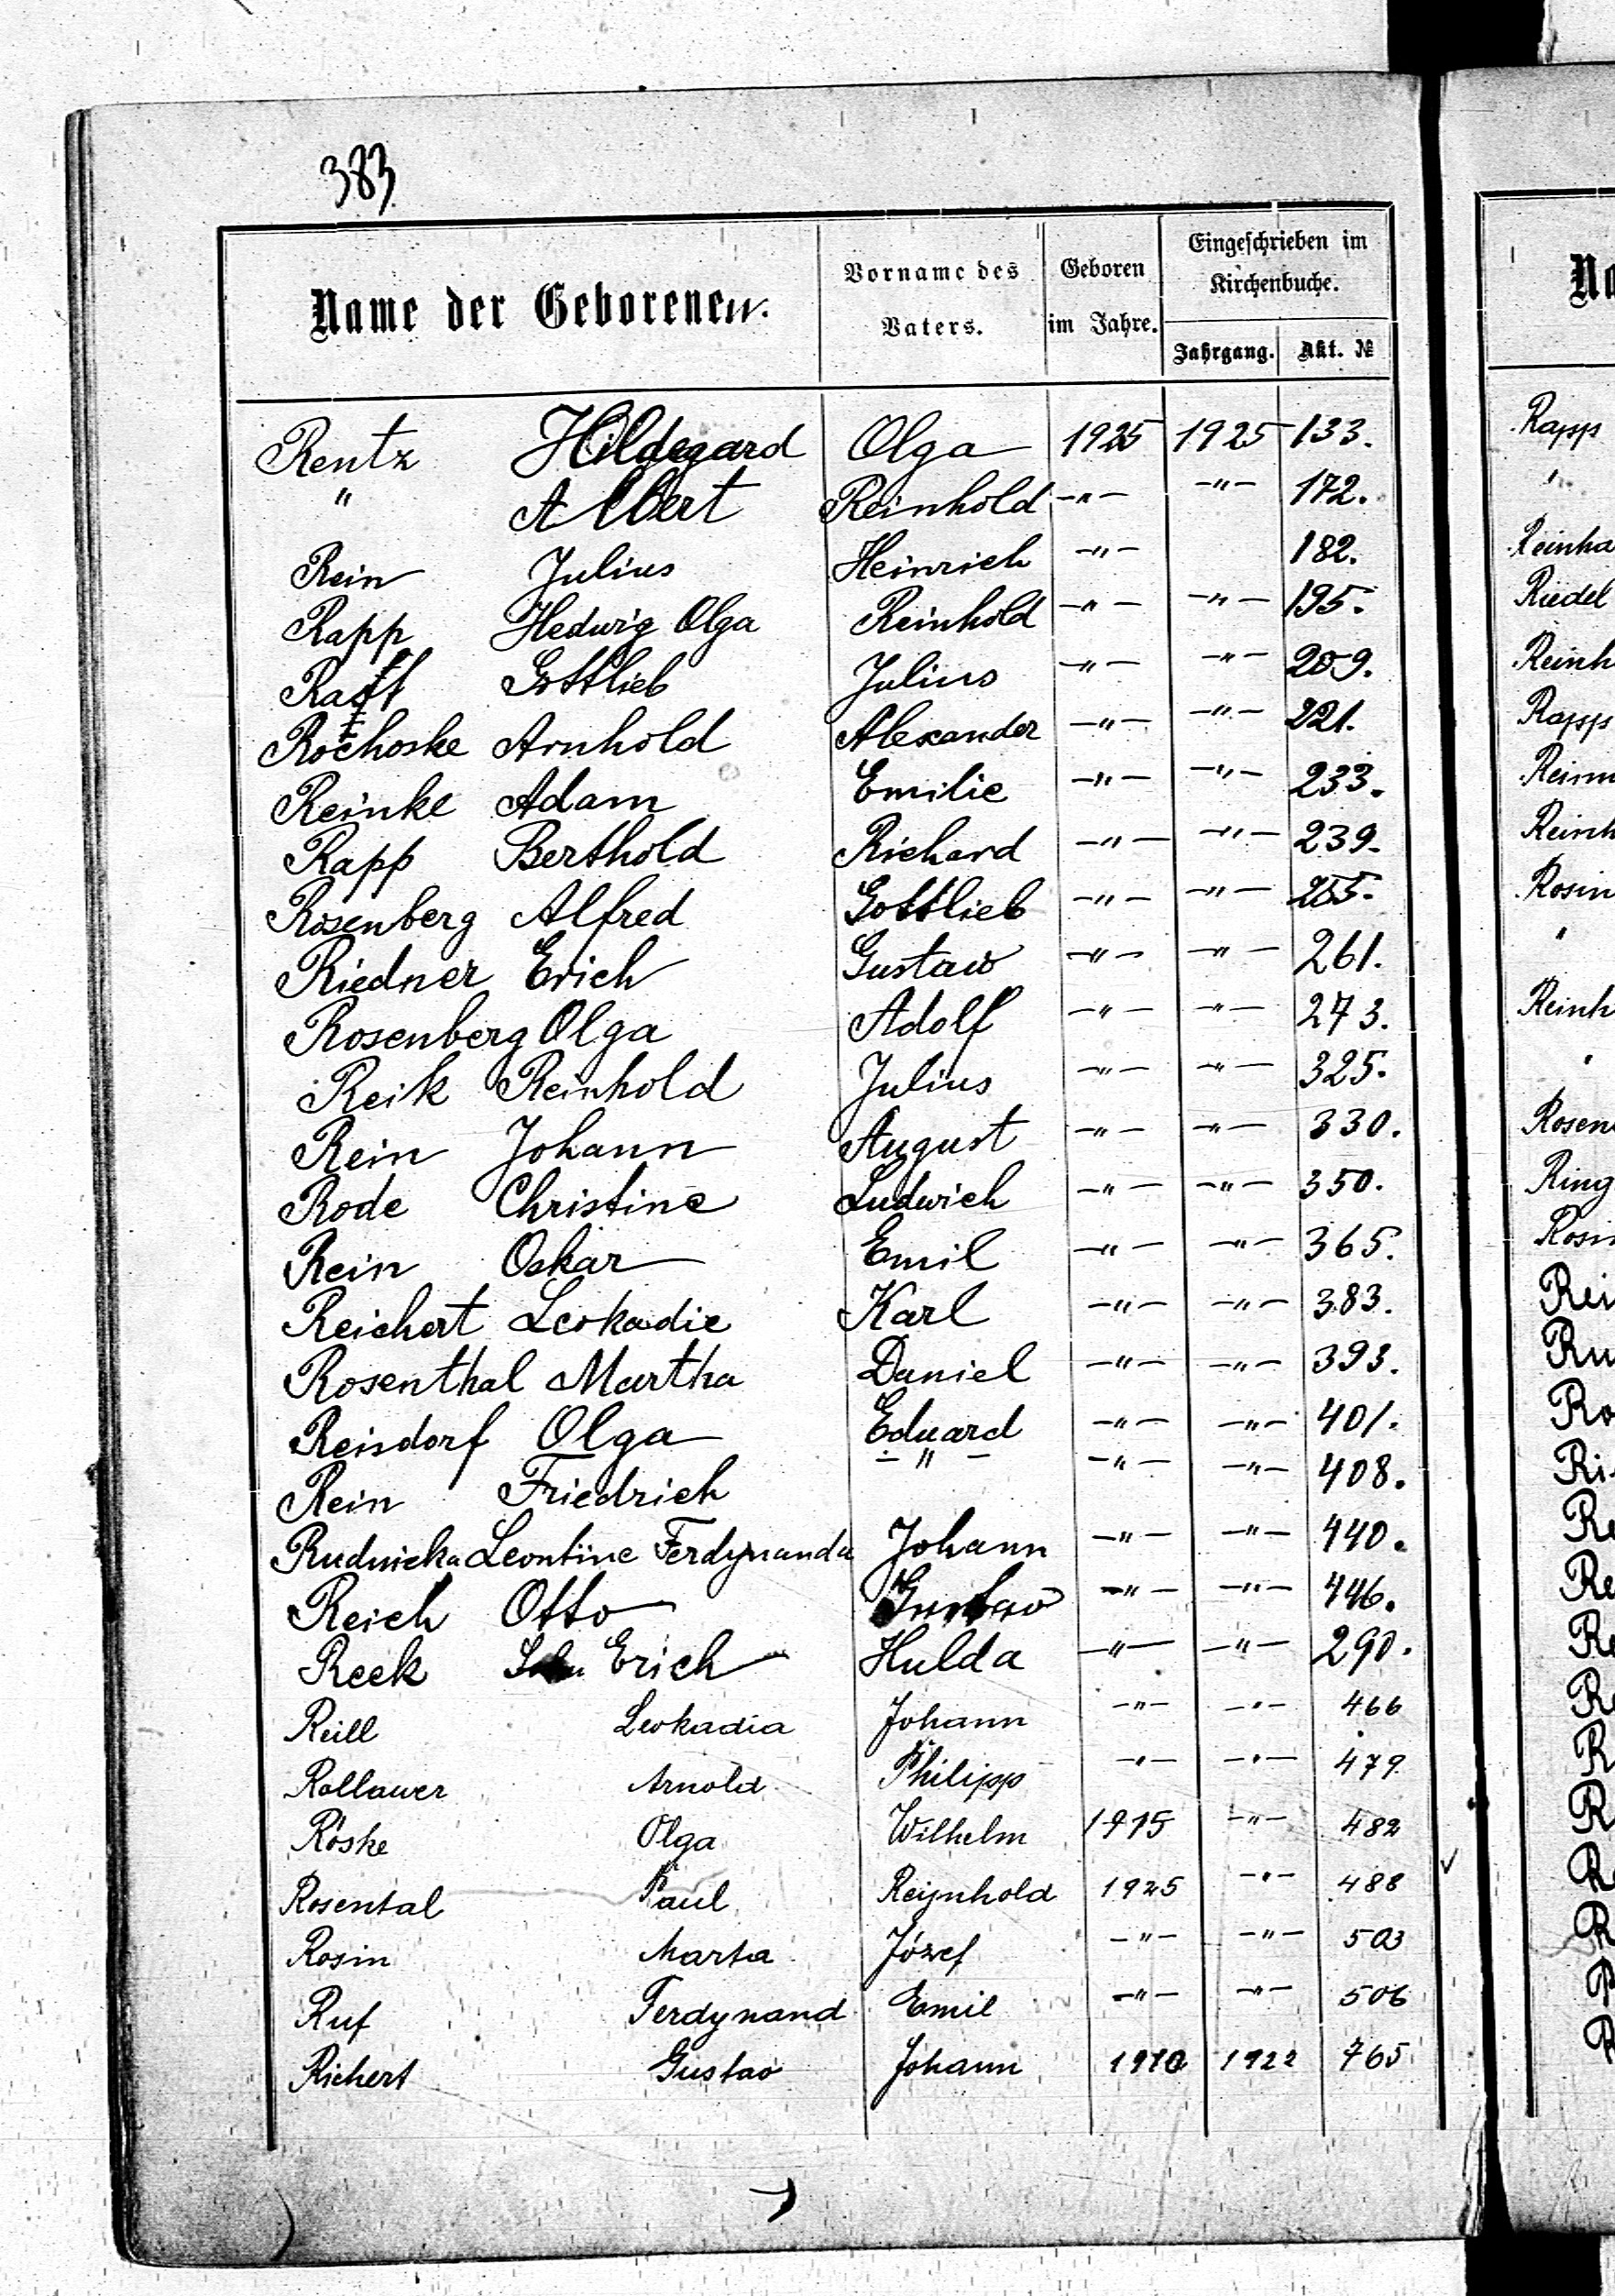 383.
Name der Geborenen.
Vorname des Vaters.
Geboren im Jahre.
Eingeschrieben im Kirchenbuche.
Jahrgang. Akt. №
Rentz Hildegard Olga 1925 1925 133.
" Albert Reinhold -"- -"- 172.
Rein Julius Heinrich -"- 182.
Rapp Hedwig Olga Reinhold -"- -"- 195.
Gottlieb Julius -"- -"- 209.
Rochoske Arnhold Alexander -"- -"- 221.
Reinke Adam Emilie -"- -"- 233.
Rapp Berthold Richard -"- -"- 239.
Rosenberg Alfred Gottlieb -"- -"- 255.
Riedner Erich Gustaw -"- -"- 261.
Rosenberg Olga Adolf -"- -"- 273.
Reik Reinhold Julius -"- -"- 325.
Rein Johann August -"- -"- 330.
Rode Christine Ludwich -"- -"- 350.
Rein Oskar Emil -"- -"- 365.
Reichert Leokadie Karl -"- -"- 383.
Rosenthal Martha Daniel -"- -"- 393.
Reisdorf Olga Eduard -"- -"- 401.
Rein Friedrich -"- -"- -"- 408.
Rudnicka Leontine Ferdynanda Johann -"- -"- 440.
Reich Otto Gustav -"- -"- 446.
Reek Erich Hulda -"- -"- 290.
Reill Leokadia Johann -"- -"- 466
Rollawer Arnold Philipp -"- -"- 479
Röske Olga Wilhelm 1915 -"- 482
Rosental Paul Reijnhold 1925 -"- 488
Rosin Marta Józef -"- -"- 503
Ruf Ferdynand Emil -"- -"- 506
Richert Gustav Johann 1910 1922 765
Na
Rapp
"
Reinha
Riedel
Reinh
Rapp
Reinh
Rosin
"
Reinh
"
Rosen
Ring
Rosi
Rei
Ru
Ro
Ri
Re
Re
Re
Re
R
R
R
R
R
R